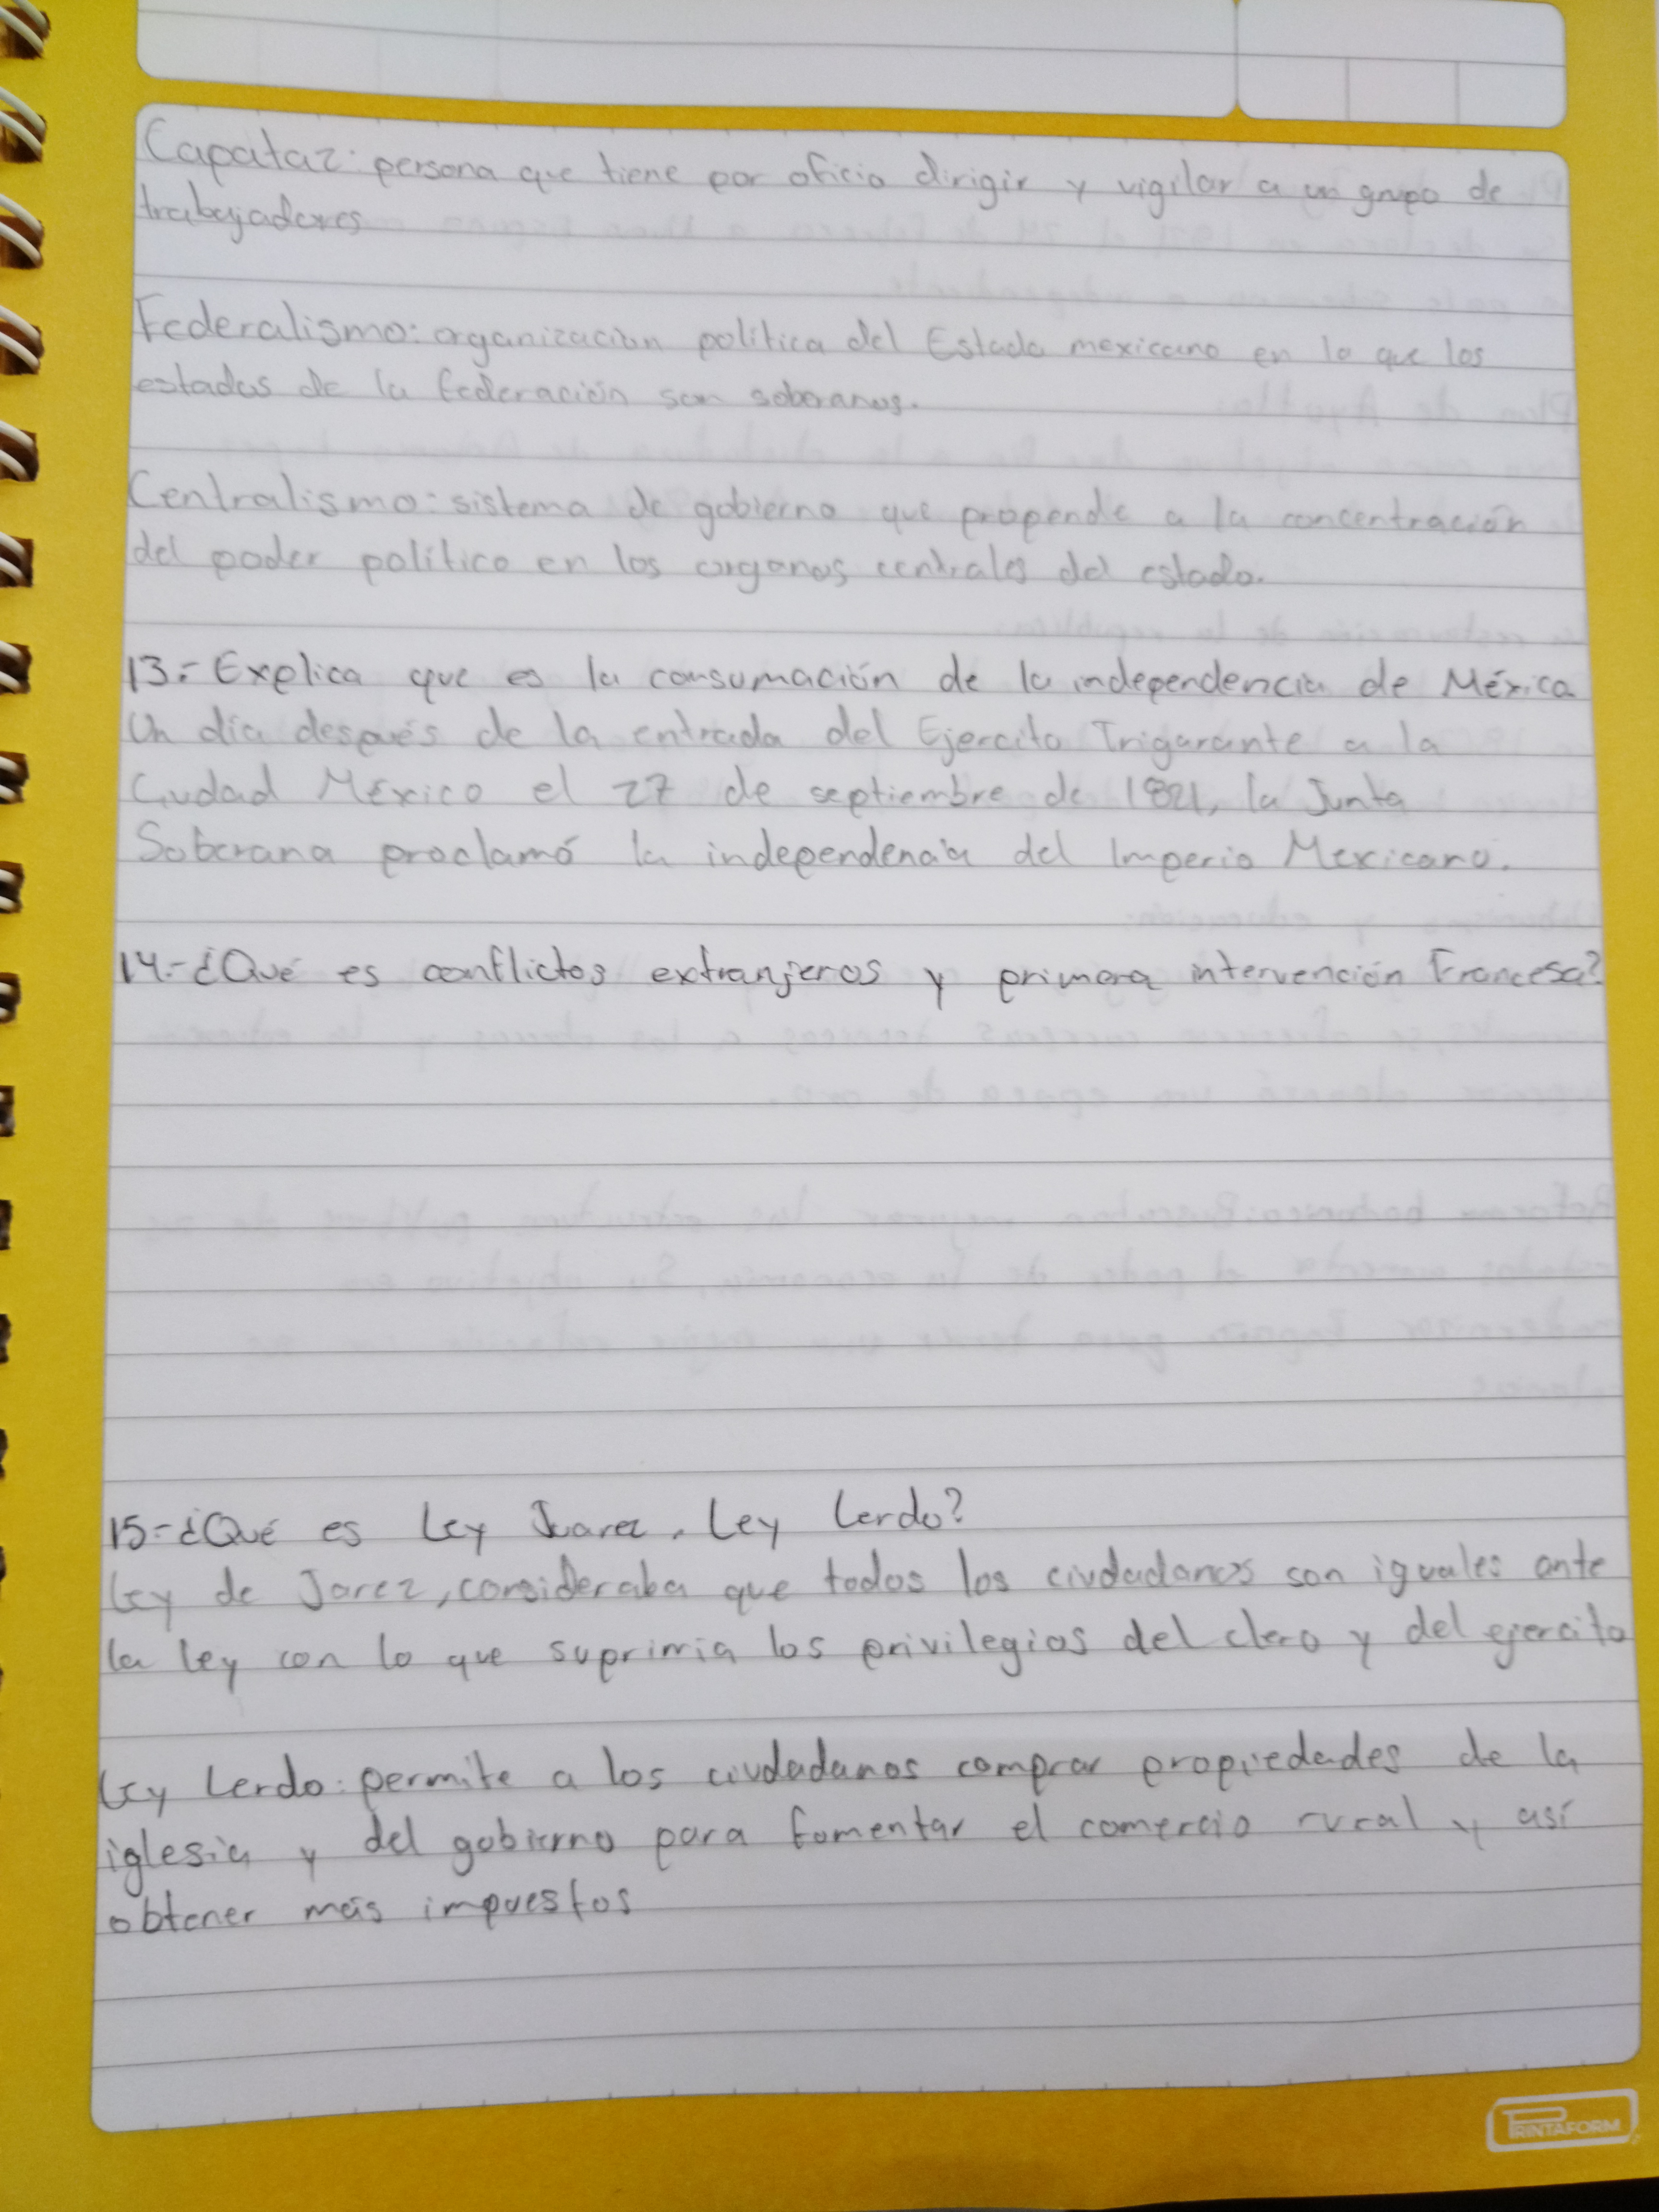 Capataz: persona que tiene por oficio dirigir y vigilar a un grupo de
trabajadores
Federalismo: organización política del Estado mexicano en lo que los
estados de la federación son soberanos.
Centralismo: sistema de gobierno que propende a la concentración
del poder político en los organos centrales del estado.
13.- Explica que es la consumación de la independencia de México
Un día después de la entrada del Ejercito Trigarante a la
Ciudad México el 27 de septiembre de 1821, la Junta
Soberana proclamó la independencia del Imperio Mexicano.
14.- ¿Qué es conflictos extranjeros y primera intervención Francesa?
15.- ¿Qué es Ley Juarez, Ley Lerdo?
Ley de Jarez, consideraba que todos los ciudadanos son iguales ante
la ley con lo que suprimia los privilegios del clero y del ejercito
Ley Lerdo: permite a los ciudadanos comprar propiedades de la
iglesia y del gobierno para fomentar el comercio rural y así
obtener más impuestos
PRINTAFORM